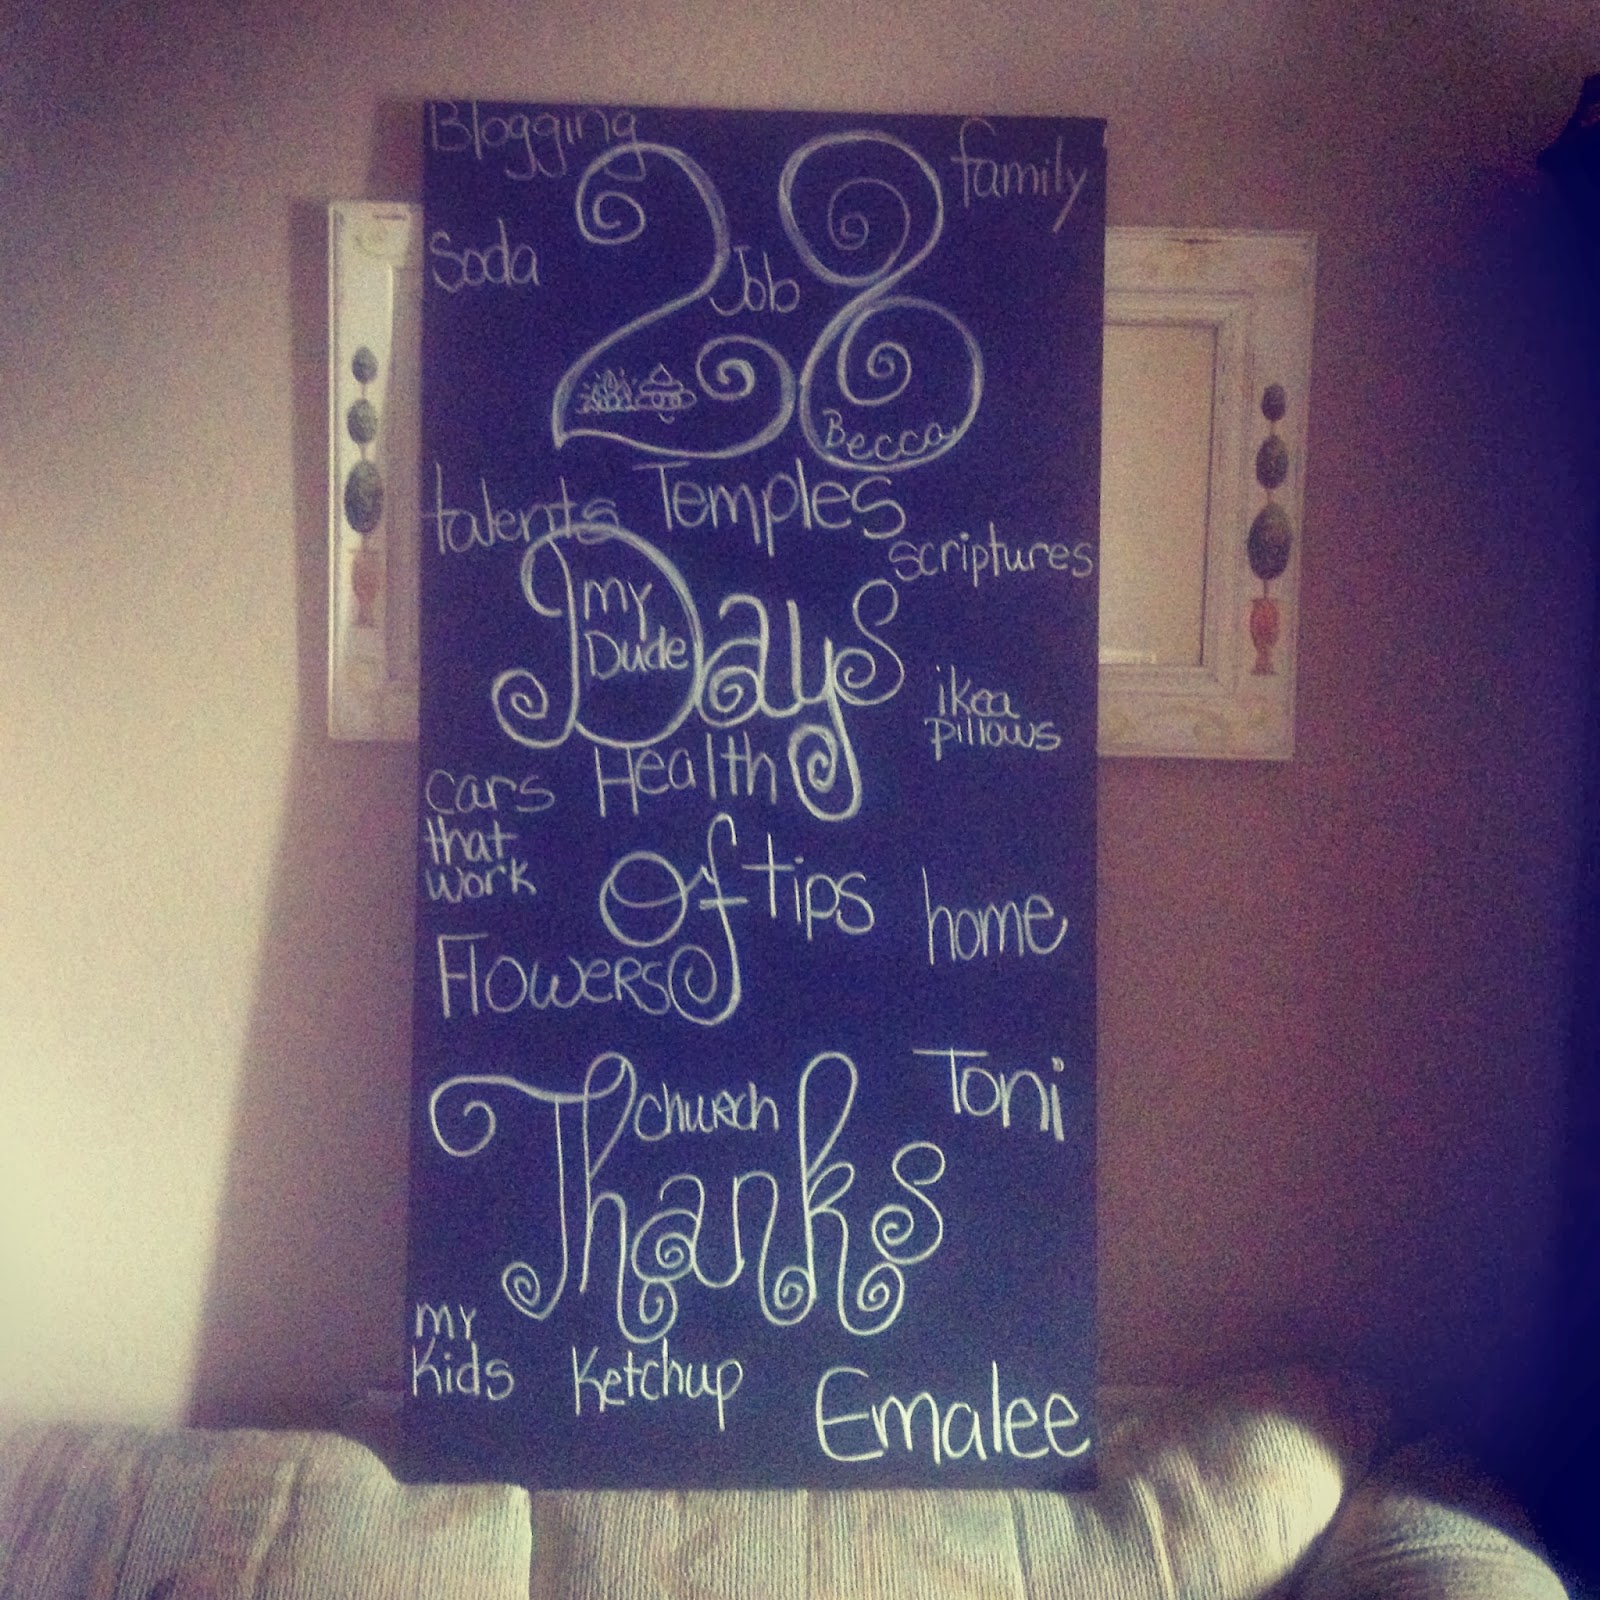 Blogging
family
Soda
28
Job
Becca
talents
Temples
scriptures
my
Dude
Days
ikea
pillows
Health
cars
that
work
Of
tips
home
Flowers
Toni
church
Thanks
my
Kids
Ketchup
Emalee